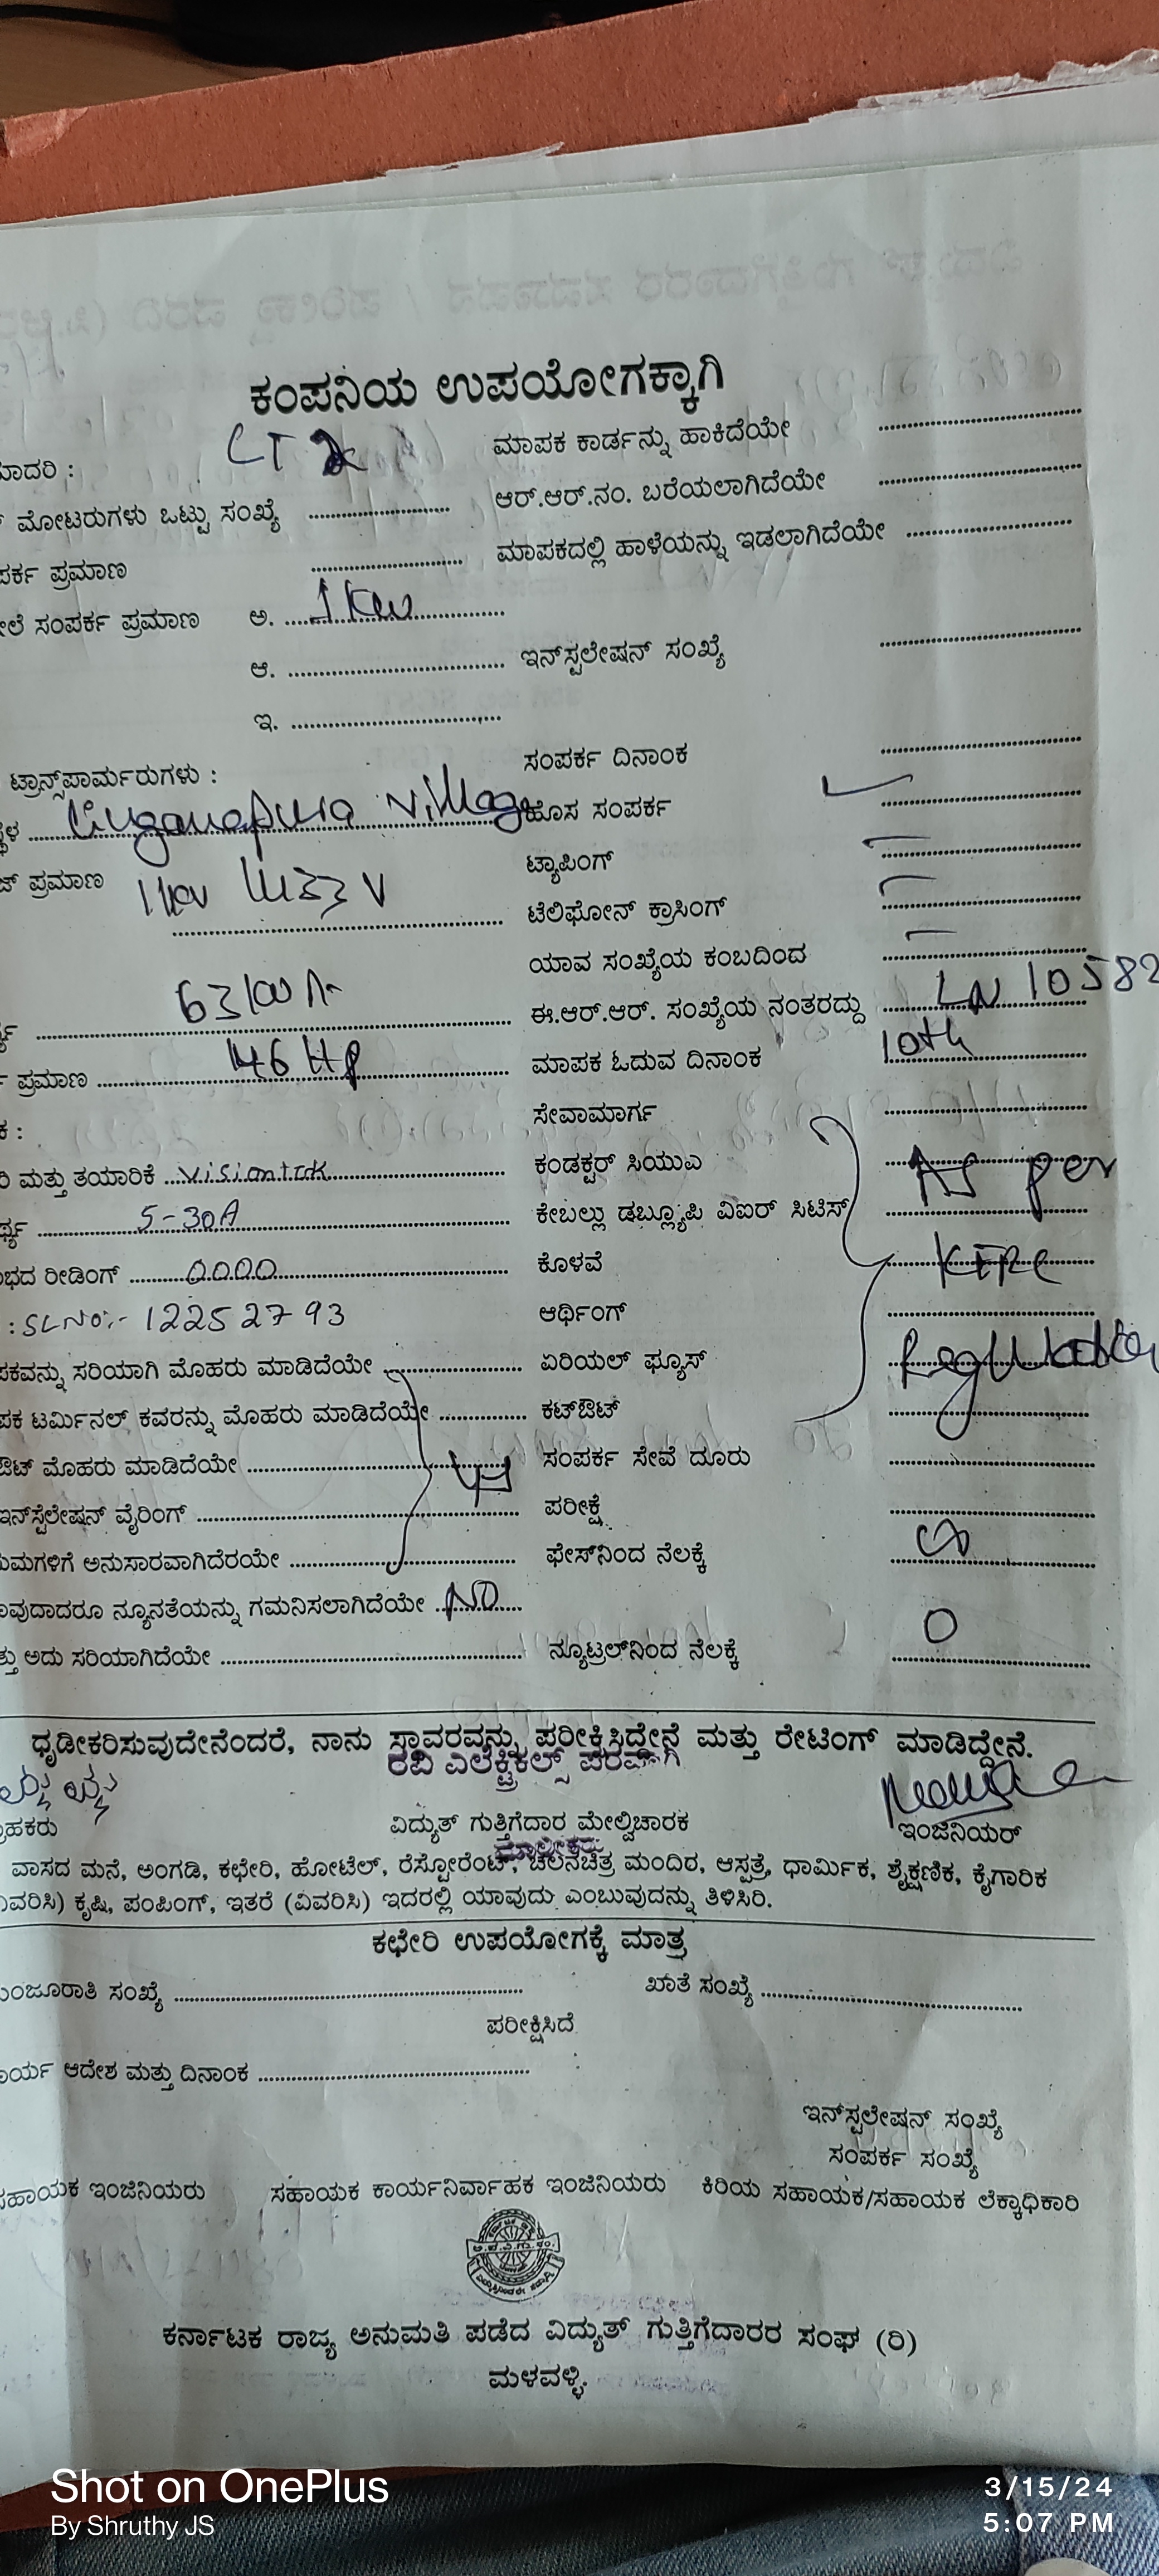 ಕಂಪನಿಯ ಉಪಯೋಗಕ್ಕಾಗಿ
LT 2 ಮಾಪಕ ಕಾರ್ಡನ್ನು ಹಾಕಿದೆಯೇ
ಮೋಟರುಗಳು ಒಟ್ಟು ಸಂಖ್ಯೆ ಆರ್.ಆರ್.ನಂ. ಬರೆಯಲಾಗಿದೆಯೇ
ಪ್ರಮಾಣ ಮಾಪಕದಲ್ಲಿ ಹಾಳೆಯನ್ನು ಇಡಲಾಗಿದೆಯೇ
ಸಂಪರ್ಕ ಪ್ರಮಾಣ ಅ. 1 KW
ಆ. ಇನ್‌ಸ್ಟಲೇಷನ್ ಸಂಖ್ಯೆ
ಇ.
ಟ್ರಾನ್ಸ್‌ಪಾರ್ಮರುಗಳು : ಸಂಪರ್ಕ ದಿನಾಂಕ
Village ಹೊಸ ಸಂಪರ್ಕ
ಪ್ರಮಾಣ ಟ್ಯಾಪಿಂಗ್
ಟೆಲಿಫೋನ್ ಕ್ರಾಸಿಂಗ್
ಯಾವ ಸಂಖ್ಯೆಯ ಕಂಬದಿಂದ
ಈ.ಆರ್.ಆರ್. ಸಂಖ್ಯೆಯ ನಂತರದ್ದು LN 10582
ಪ್ರಮಾಣ 146 HP ಮಾಪಕ ಓದುವ ದಿನಾಂಕ 10th
ಸೇವಾಮಾರ್ಗ
ಮತ್ತು ತಯಾರಿಕೆ Visiontek ಕಂಡಕ್ಟರ್ ಸಿಯುಎ As per
5-30A ಕೇಬಲ್ಲು ಡಬ್ಲ್ಯೂಪಿ ವಿಐರ್ ಸಿಟಿಸ್
ರೀಡಿಂಗ್ 0000 ಕೊಳವೆ KERC
: SL No:- 12252793 ಆರ್ಥಿಂಗ್
ಸರಿಯಾಗಿ ಮೊಹರು ಮಾಡಿದೆಯೇ ಏರಿಯಲ್ ಫ್ಯೂಸ್
ಟರ್ಮಿನಲ್ ಕವರನ್ನು ಮೊಹರು ಮಾಡಿದೆಯೇ ಕಟ್‌ಔಟ್
ಮೊಹರು ಮಾಡಿದೆಯೇ ಸಂಪರ್ಕ ಸೇವೆ ದೂರು
ಇನ್‌ಸ್ಟೆಲೇಷನ್ ವೈರಿಂಗ್ ಪರೀಕ್ಷೆ
ಅನುಸಾರವಾಗಿದೆರಯೇ ಫೇಸ್‌ನಿಂದ ನೆಲಕ್ಕೆ
ನ್ಯೂನತೆಯನ್ನು ಗಮನಿಸಲಾಗಿದೆಯೇ NO
ಅದು ಸರಿಯಾಗಿದೆಯೇ ನ್ಯೂಟ್ರಲ್‌ನಿಂದ ನೆಲಕ್ಕೆ 0
ಧೃಡೀಕರಿಸುವುದೇನೆಂದರೆ, ನಾನು ಸ್ಥಾವರವನ್ನು ಪರೀಕ್ಷಿಸಿದ್ದೇನೆ ಮತ್ತು ರೇಟಿಂಗ್ ಮಾಡಿದ್ದೇನೆ.
ರವಿ ಎಲೆಕ್ಟ್ರಿಕಲ್ಸ್ ಪರವಾಗಿ
ವಿದ್ಯುತ್ ಗುತ್ತಿಗೆದಾರ ಮೇಲ್ವಿಚಾರಕ ಇಂಜಿನಿಯರ್
ಮಾಲೀಕರು
ವಾಸದ ಮನೆ, ಅಂಗಡಿ, ಕಛೇರಿ, ಹೋಟೆಲ್, ರೆಸ್ಟೋರೆಂಟ್, ಚಲನಚಿತ್ರ ಮಂದಿರ, ಆಸ್ಪತ್ರೆ, ಧಾರ್ಮಿಕ, ಶೈಕ್ಷಣಿಕ, ಕೈಗಾರಿಕ
ಕೃಷಿ, ಪಂಪಿಂಗ್, ಇತರೆ (ವಿವರಿಸಿ) ಇದರಲ್ಲಿ ಯಾವುದು ಎಂಬುವುದನ್ನು ತಿಳಿಸಿರಿ.
ಕಛೇರಿ ಉಪಯೋಗಕ್ಕೆ ಮಾತ್ರ
ಸಂಖ್ಯೆ ಖಾತೆ ಸಂಖ್ಯೆ
ಪರೀಕ್ಷಿಸಿದೆ
ಆದೇಶ ಮತ್ತು ದಿನಾಂಕ
ಇನ್‌ಸ್ಟಲೇಷನ್ ಸಂಖ್ಯೆ
ಸಂಪರ್ಕ ಸಂಖ್ಯೆ
ಇಂಜಿನಿಯರು ಸಹಾಯಕ ಕಾರ್ಯನಿರ್ವಾಹಕ ಇಂಜಿನಿಯರು ಕಿರಿಯ ಸಹಾಯಕ/ಸಹಾಯಕ ಲೆಕ್ಕಾಧಿಕಾರಿ
ಕರ್ನಾಟಕ ರಾಜ್ಯ ಅನುಮತಿ ಪಡೆದ ವಿದ್ಯುತ್ ಗುತ್ತಿಗೆದಾರರ ಸಂಘ (ರಿ)
ಮಳವಳ್ಳಿ.
Shot on OnePlus
By Shruthy JS
3/15/24
5:07 PM